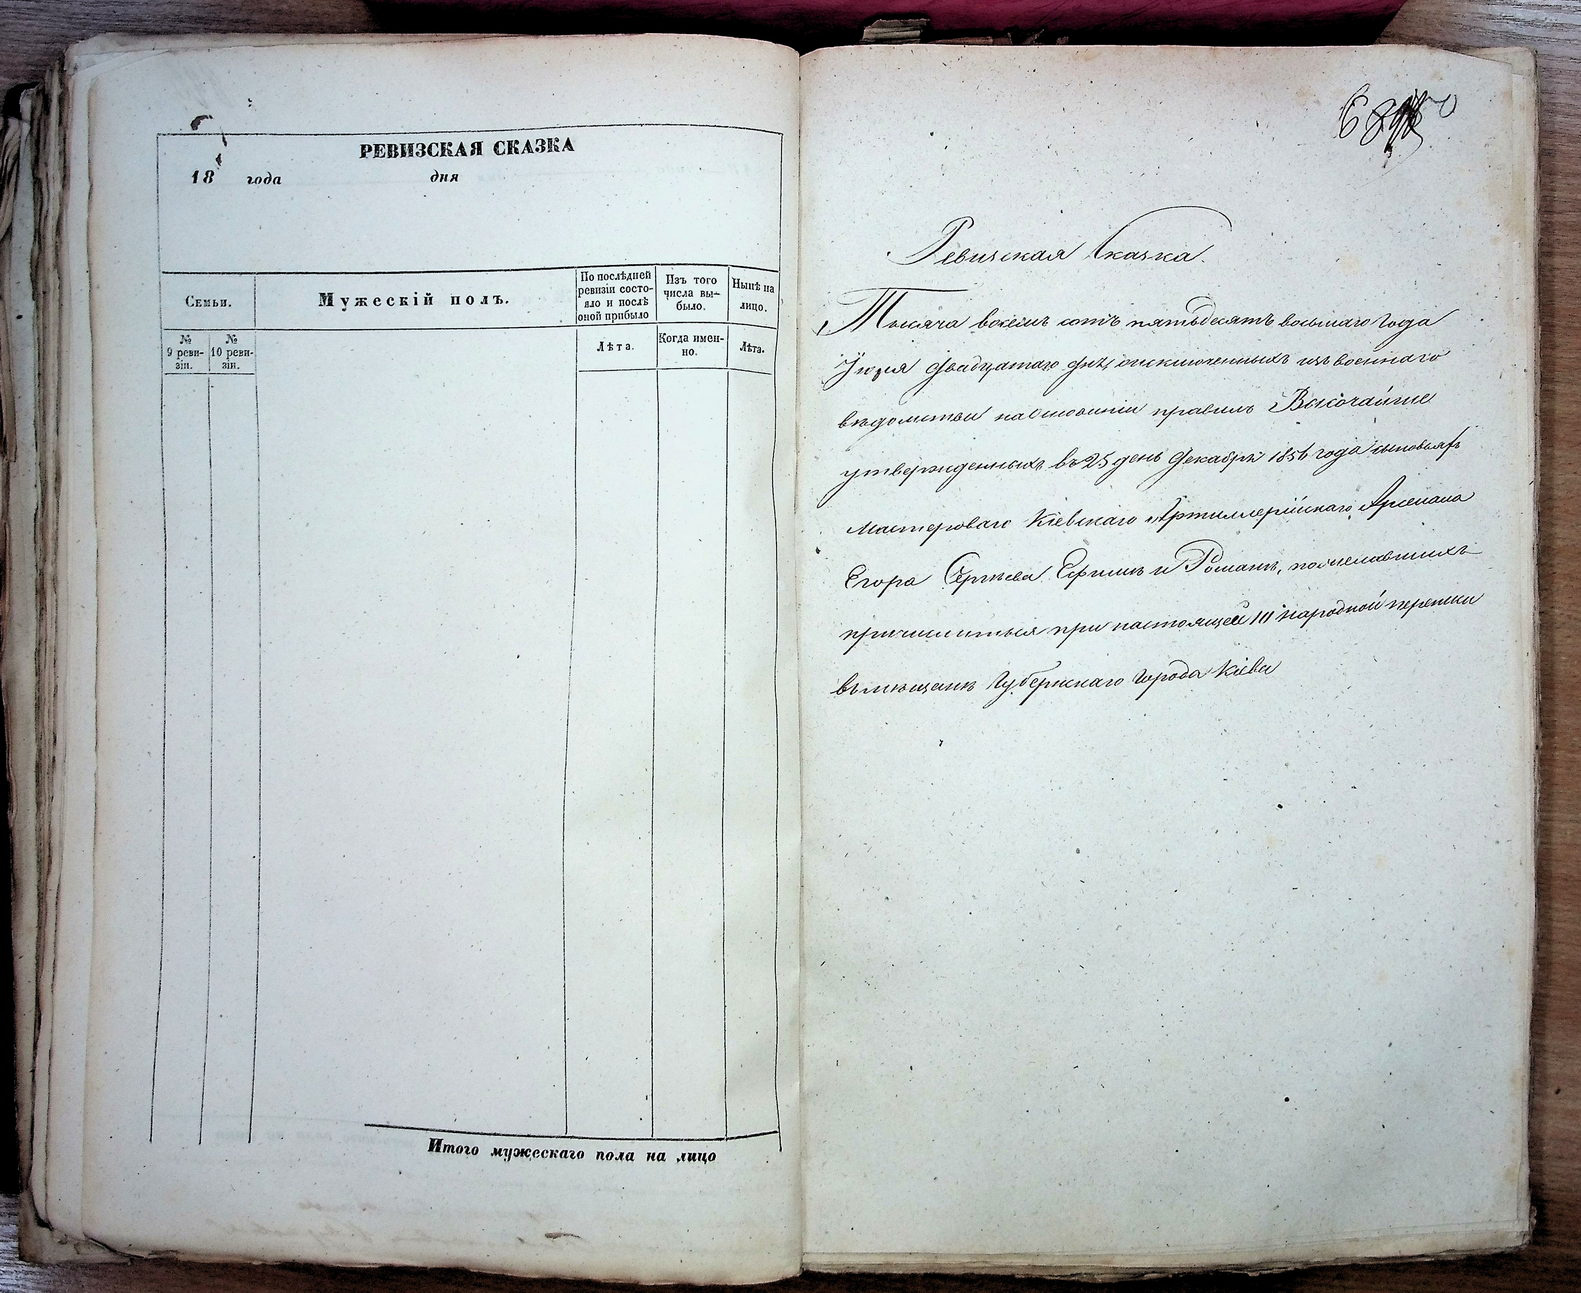 РЕВИЗСКАЯ СКАЗКА
18 года дня
Семьи.
Мужескій полъ.
По послѣдней
ревизіи состо-
яло и послѣ
оной прибыло
Изъ того
числа вы-
было.
Нынѣ на
лицо.
№
9 реви-
зіи.
№
10 реви-
зіи.
Лѣта.
Когда имен-
но.
Лѣта.
Итого мужескаго пола на лицо
Ревизская Сказка.
Тысяча восемь сотъ пятьдесятъ восьмаго года
двадцатаго дня, о исключенныхъ изъ военнаго
вѣдомства на основаніи правилъ Высочайше
утвержденныхъ въ 25 день Декабря 1856 года сыновьяхъ
мастероваго Кіевскаго Артиллерійскаго Арсенала
Егора Сергѣева Ефимѣ и Романѣ, пожелавшихъ
причислиться при настоящей 10 народной переписи
въ мѣщане Губернскаго города Кіева